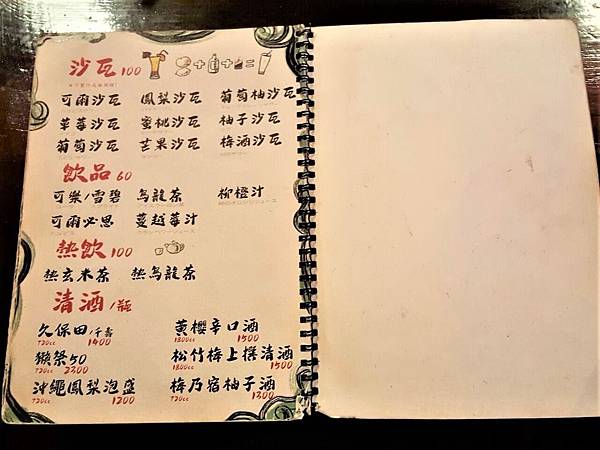 沙瓦 100
可爾沙瓦 鳳梨沙瓦 葡萄柚沙瓦
草莓沙瓦 蜜桃沙瓦 柚子沙瓦
葡萄沙瓦 芒果沙瓦 梅酒沙瓦
飲品 60
可樂/雪碧 烏龍茶 柳橙汁
可爾必思 蔓越莓汁
熱飲 100
熱玄米茶 熱烏龍茶
清酒/瓶
久保田/千壽 黃櫻辛口酒
720cc 1400 1800cc 1500
獺祭50 松竹梅上撰清酒
720cc 2300 1800cc 1500
沖繩鳳梨泡盛 梅乃宿柚子酒
720cc 1200 720cc 1300